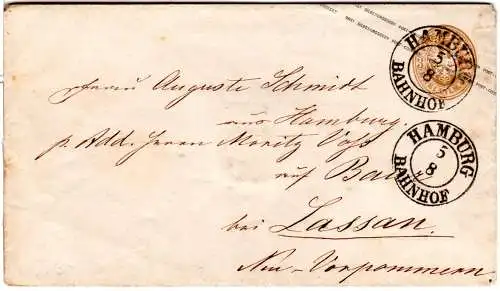 HAMBURG
5
8
BAHNHOF
Frau Auguste Schmidt
aus Hamburg.
p. Add. Herrn Moritz Voss
auf Bau
HAMBURG
5
8
BAHNHOF
bei Lassan.
Neu-Vorpommern